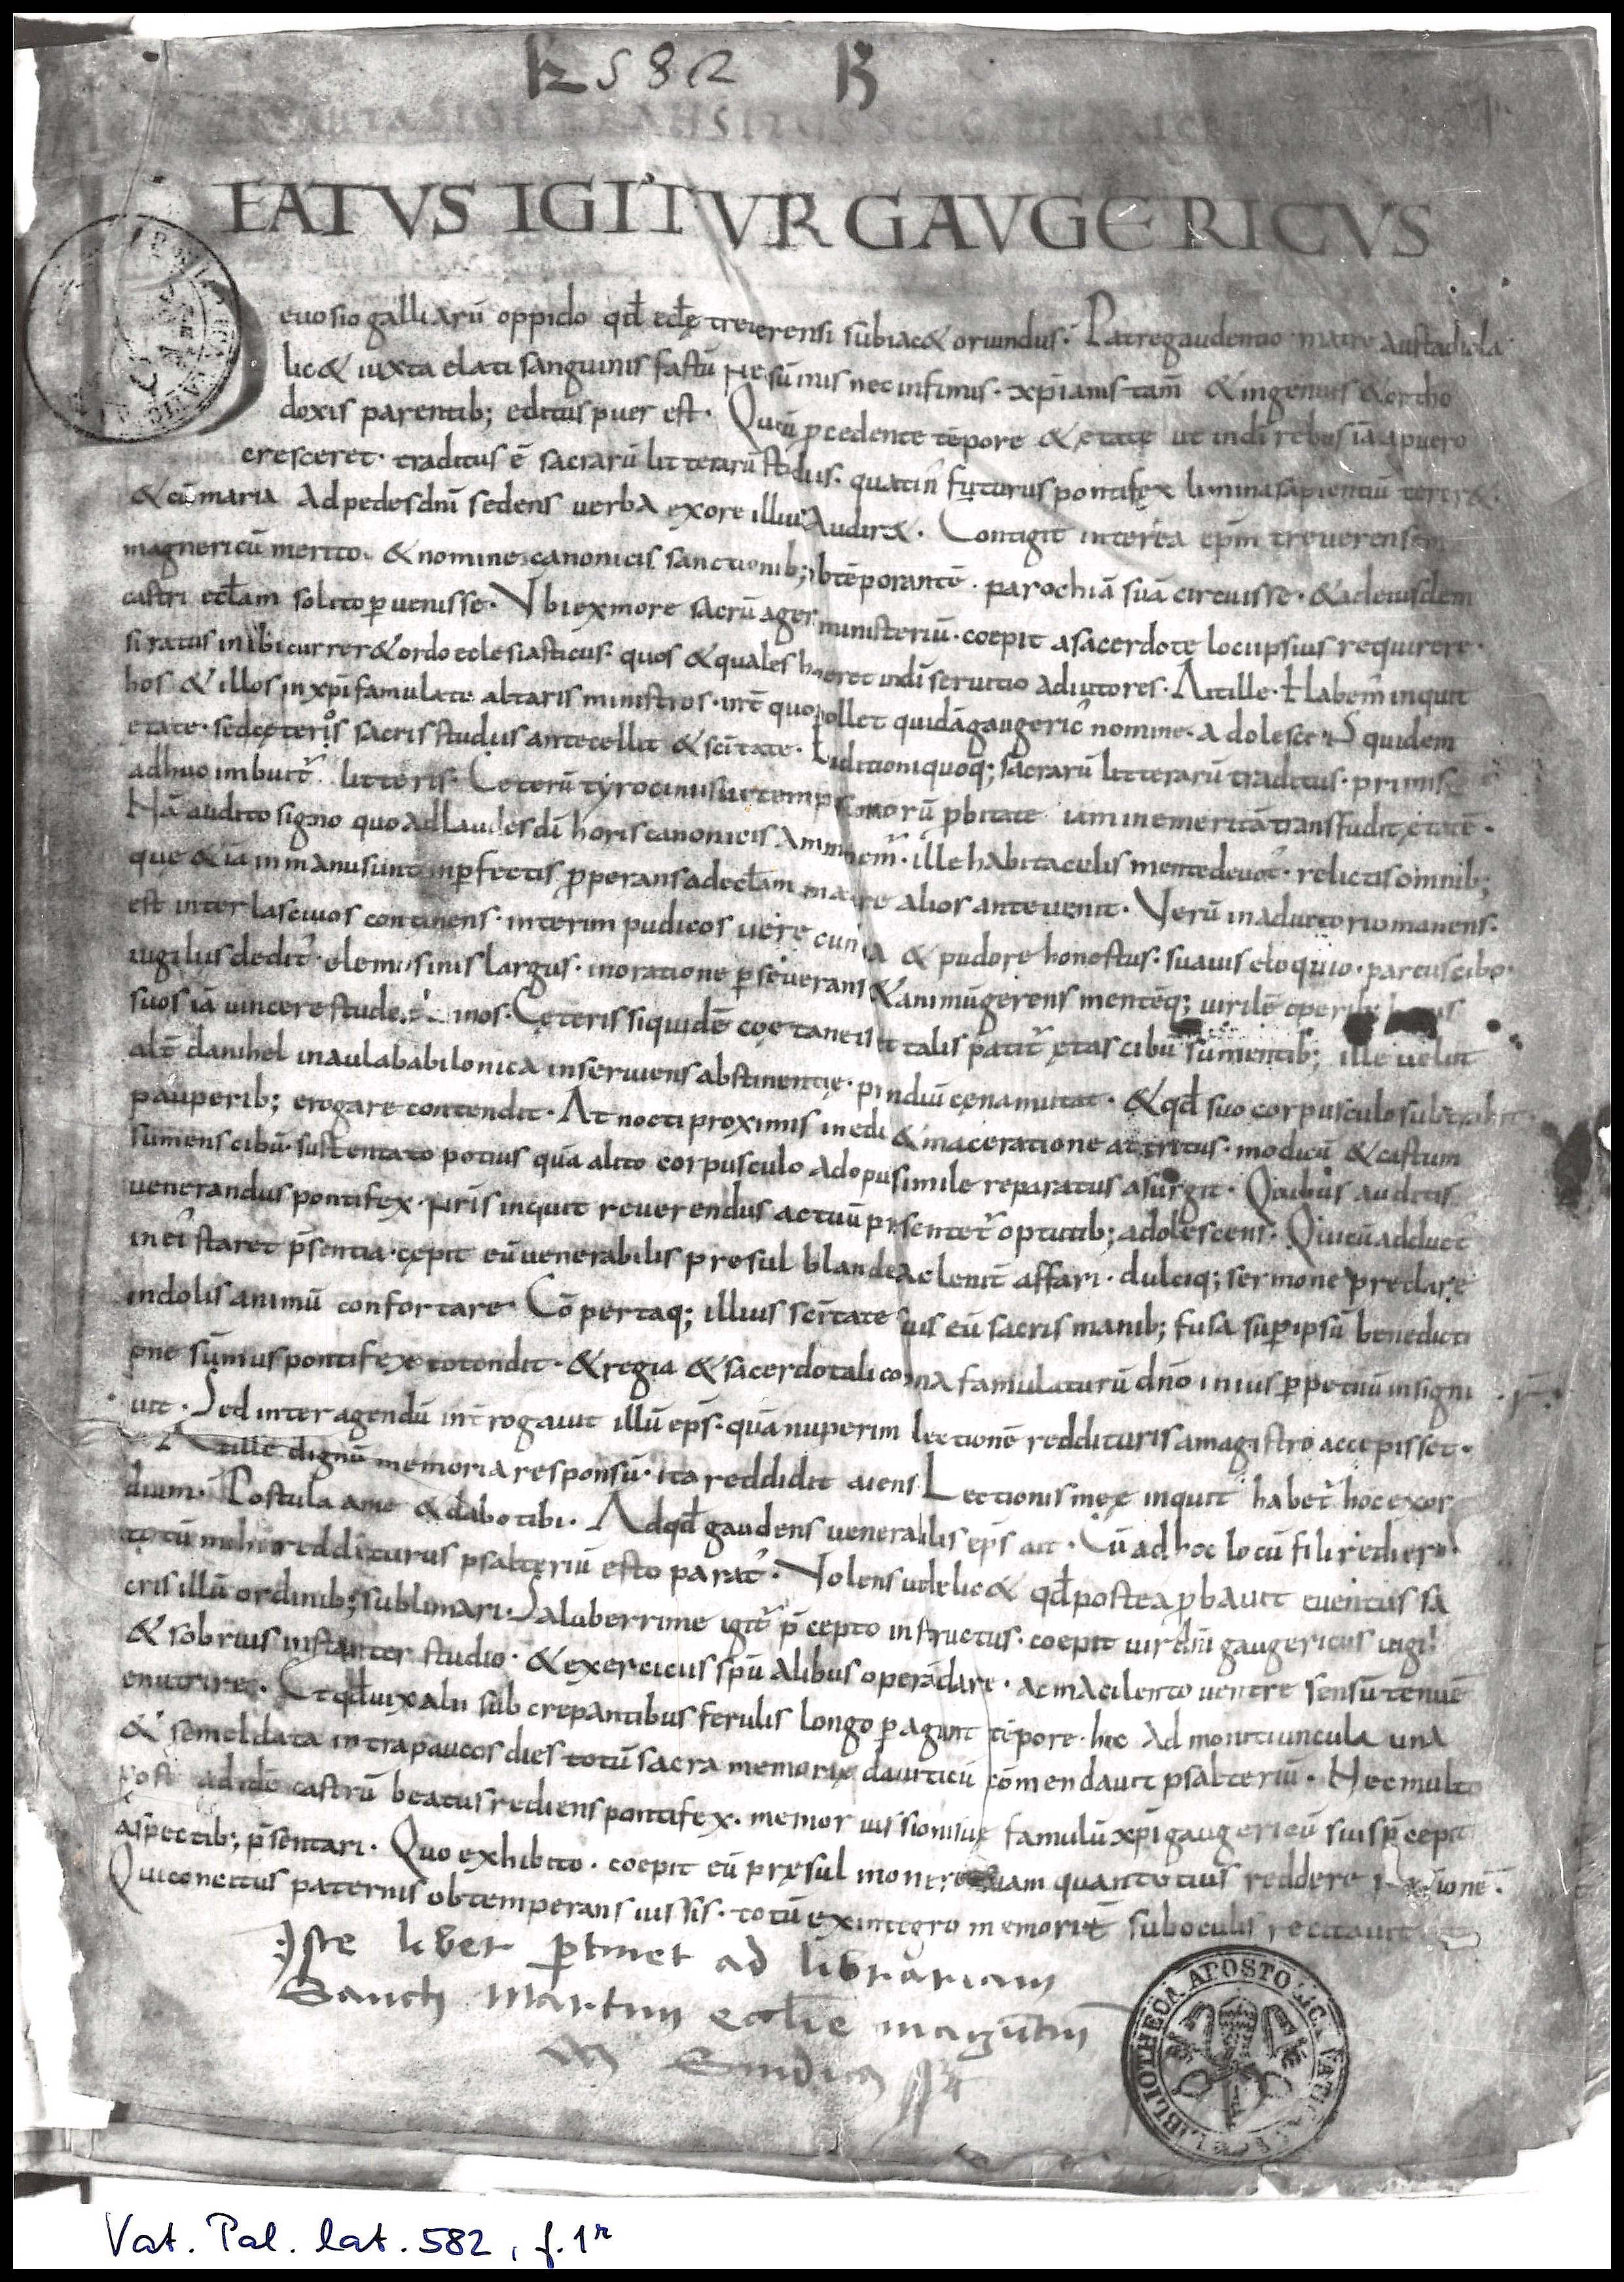 K 582 B
EATVS IGITVR GAVGERICVS
euosio galliarū oppido qđ ecłę treuerensi subiac& oriundus. Patre gaudentio matre austadiola
lic& iuxta elati sanguinis fastū ne sūmis nec infimis. xpianis tam̄ & ingenuis & ortho
doxis parentib; editus puer est. Qui cū pcedente tēpore & etate
cresceret. traditus ē sacrarū litterarū studiis. quatin' futurus pontifex limina sapientiū terer&.
& cū maria ad pedes dnī sedens uerba ex ore illius audir&. Contigit interea epm̄ treuerensem
magnericū merito. & nomine. canonicis sanctionib; obtēporantē. parochiā suā circuisse. & ad eiusdem
castri ecłam solito puenisse. Vbi ex more sacrū ager& ministeriū. coepit a sacerdote loci ipsius requirere.
si ratus inibi currer& ordo eclesiasticus. quos & quales haberet
hos & illos in xpī famulatu altaris ministros. int̄ quos pollet quidā gaugeric' nomine. Adolesc quidem
etate. sed ceteros sacris studiis antecellit & scītate. quoq; sacrarū litterarū traditus. primis
adhuc imbuit' litteris. Ceterū morū pbitate iam in emeritā transfudit etatē.
Nā audito signo quo ad laudes dī horis canonicis ammonem'. ille habitaculis mente deuot'. relictis omnib;
que & iā in manu sunt inpfectis. pperans ad ecłam alios anteuenit. Verū in adiutorio manens.
est inter lasciuos continens. interim pudicos uerecundia & pudore honestus. suauis eloquio. parcus cibo.
uigiliis dedit'. elemosinis largus. in oratione pseuerans & animū gerens mentēq; uirilē
suos iā uincere stude annos. Ceteris siquidē coetaneis ut talis patit' etas cibū sūmentib; ille uelut
alt' danihel in aula babilonica inseruiens abstinentię. prandiū cena mutat. & qđ suo corpusculo subtrahit
pauperib; erogare contendit. At nocti proximis inedia & maceratione attritus. modicū & castum
sumens cibū. sustentato potius quā alito corpusculo ad opus simile reparatus asurgit. Quibus auditis
uenerandus pontifex. nr̄is inquit reuerendus actuū psentet' optutib; adolescens. Qui cū adduct'
in ei' staret p̄sentia. cępit eū uenerabilis presul blande ac lenit' affari. dulciq; sermone preclarę
indolis animū confortare. Cōpertaq; illius scītate suis eū sacris manib; fusa sup ipsū benedicti
one sūmus pontifex totondit. & regia & sacerdotali coma famulaturū dnō in ius ppetuū insigni
uit. Sed inter agendū int'rogauit illū eps̄. quā nuperim lectionē redditurus a magistro accepisset.
At ille dignū memoria responsū. ita reddidit aiens Lectionis męę inquit habet' hoc exor
dium. Postula a me & dabo tibi. Ad qđ gaudens uenerabilis eps̄ ait. Cū ad hoc locū fili rediero
totū mihi redditurus psalteriū esto parat'. Volens uidelic& qđ postea pbauit euentus sa
cris illū ordinib; sublimari. Saluberrime igit' p̄cepto instructus. coepit uir dnī gaugericus uigil
& sobrius instanter studio. & exercitiis spū alibus operā dare. ac macilento uentre sensū tenuē
enutrire. Et qđ uix alii sub crepantibus ferulis longo pagunt tēpore. hec admonitiuncula una
& semel data intra paucos dies totū sacra memorię dauiticū cōmendauit psalteriū. Nec multo
post ad idē castrū beatus rediens pontifex. memor iussionis suę famulū xpī gaugericū suis p̄cepit
aspectib; p̄sentari. Quo exhibito. coepit eū pręsul monere quantotius reddere
Qui concitus paternis obtemperans iussis. totū ex integro memoritē sub oculis recitauit
Iste liber ptinet ad librariam
Sancti Martini eccłie magūtiń
M Sindicus
BIBLIOTHECA APOSTOLICA VATICANA
Vat. Pal. lat. 582, f. 1r